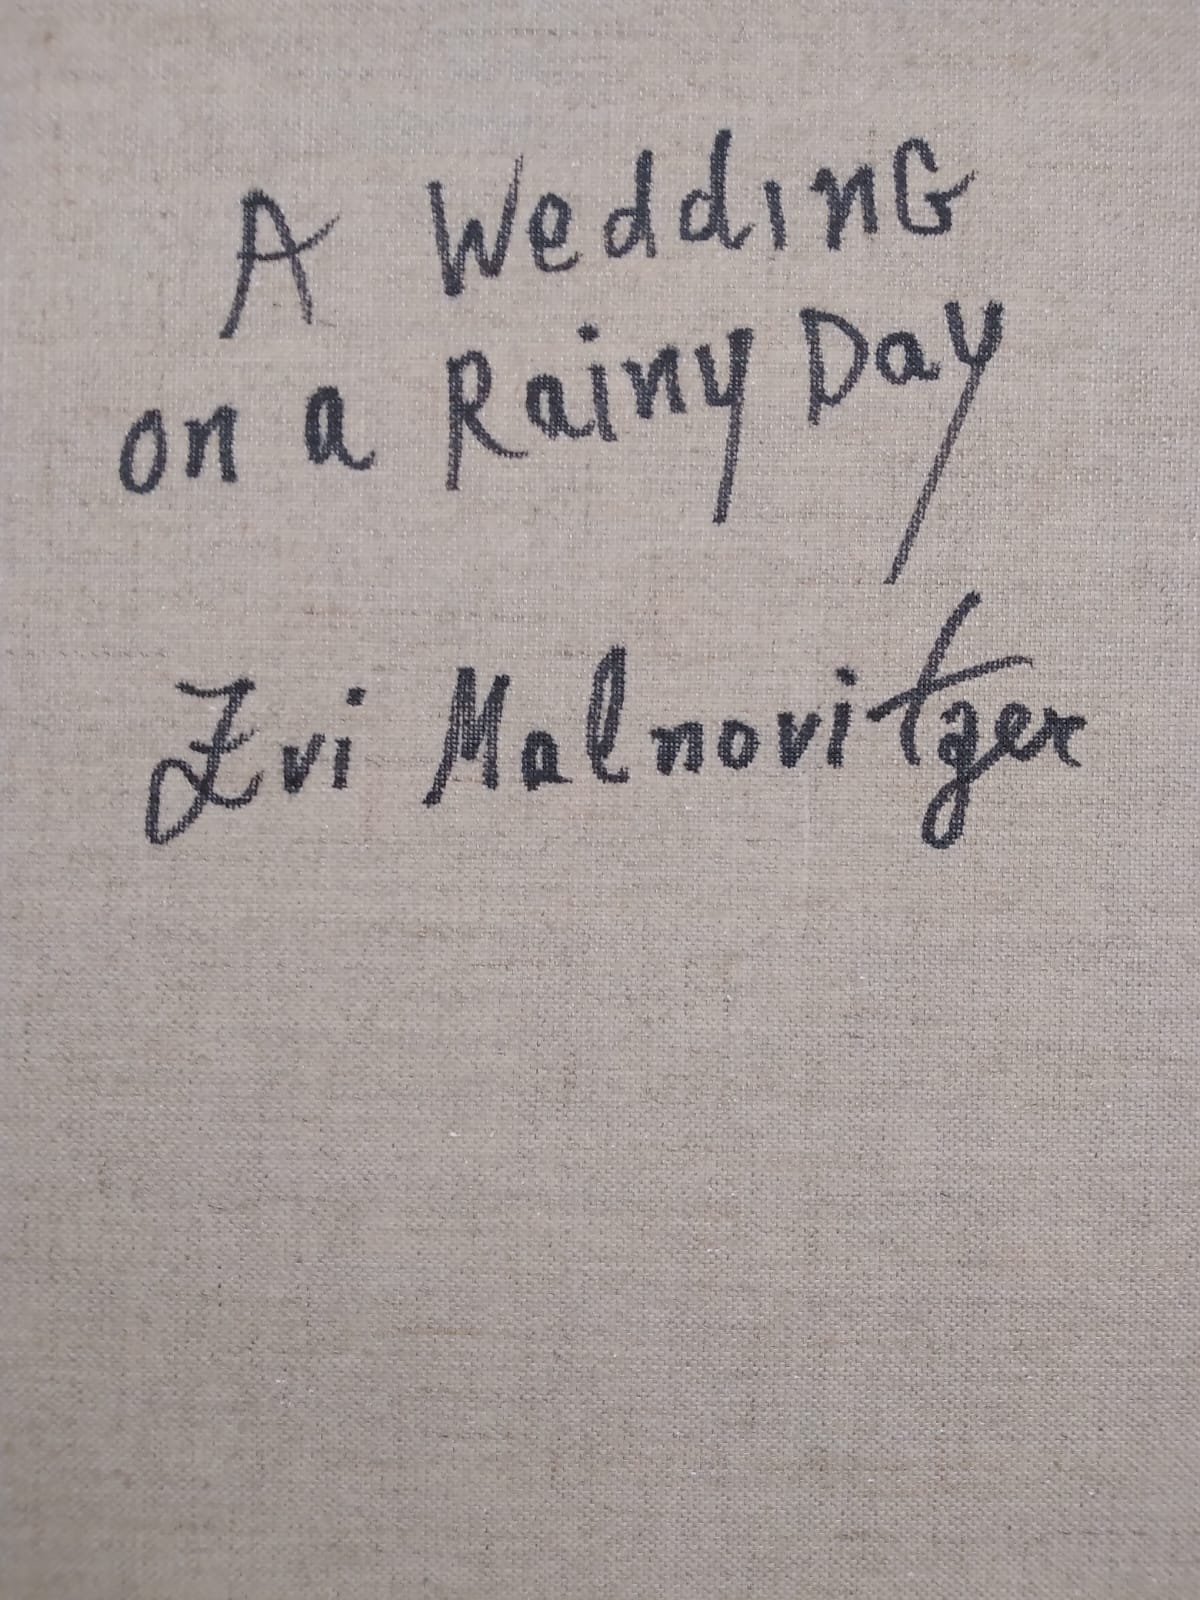 A Wedding
on a Rainy Day
Zvi Malnovitzer